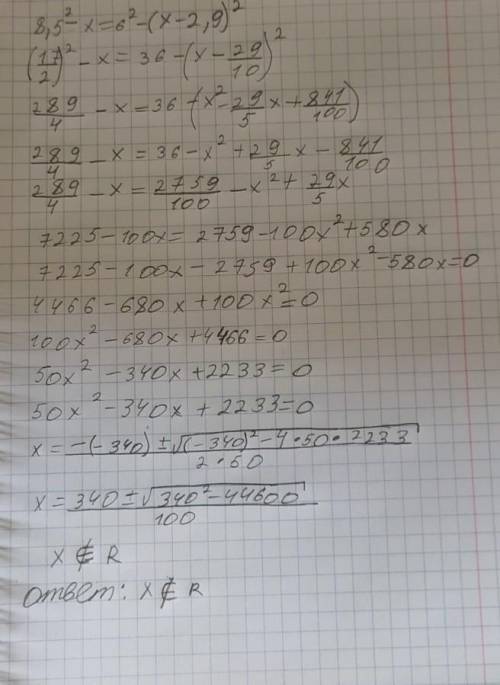 8,5² - x = 6² - (x - 2,9)²
(17/2)² - x = 36 - (x - 29/10)²
289/4 - x = 36 - (x² - 29/5 x + 841/100)
289/4 - x = 36 - x² + 29/5 x - 841/100
289/4 - x = 2759/100 - x² + 29/5 x
7225 - 100x = 2759 - 100x² + 580x
7225 - 100x - 2759 + 100x² - 580x = 0
4466 - 680x + 100x² = 0
100x² - 680x + 4466 = 0
50x² - 340x + 2233 = 0
50x² - 340x + 2233 = 0
x = (-(-340) ± √((-340)² - 4·50·2233)) / (2·50)
x = (340 ± √(340² - 44600)) / 100
x ∉ R
ответ: x ∉ R